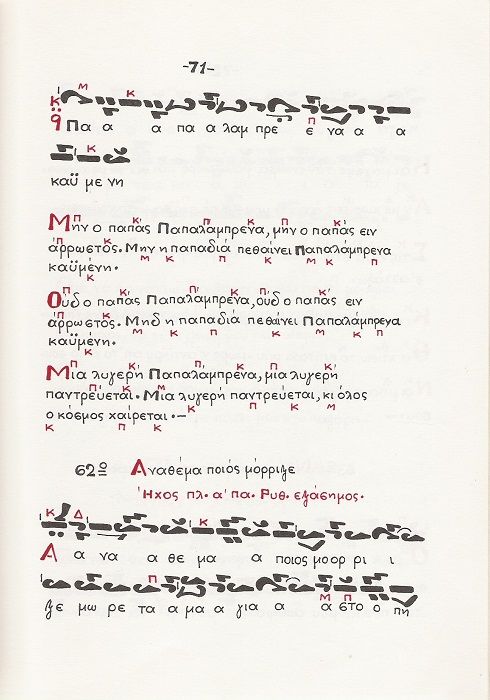 -71-
Πα α α πα α λαμ πρε ε να α α
καϋ με νη
Μην ο παπάς Παπαλάμπρενα, μην ο παπάς ειν
άρρωστός. Μην η παπαδιά πεθαίνει Παπαλάμπρενα
καϋμένη.
Ουδ ο παπάς Παπαλάμπρενα, ουδ ο παπάς ειν
άρρωστός. Μηδ η παπαδιά πεθαίνει Παπαλάμπρενα
καϋμένη.
Μια λυγερή Παπαλάμπρενα, μια λυγερή
παντρεύεται. Μια λυγερή παντρεύεται, κι όλος
ο κόσμος χαίρεται.—
62ο Αναθέμα ποιός μόρριξε
Ήχος πλ. α' πα. Ρυθ. εξάσημος.
Α α να α θε μα α ποιος μο ορ ρι ι
ξε μω ρε τα α μα α για α α στο ο πη